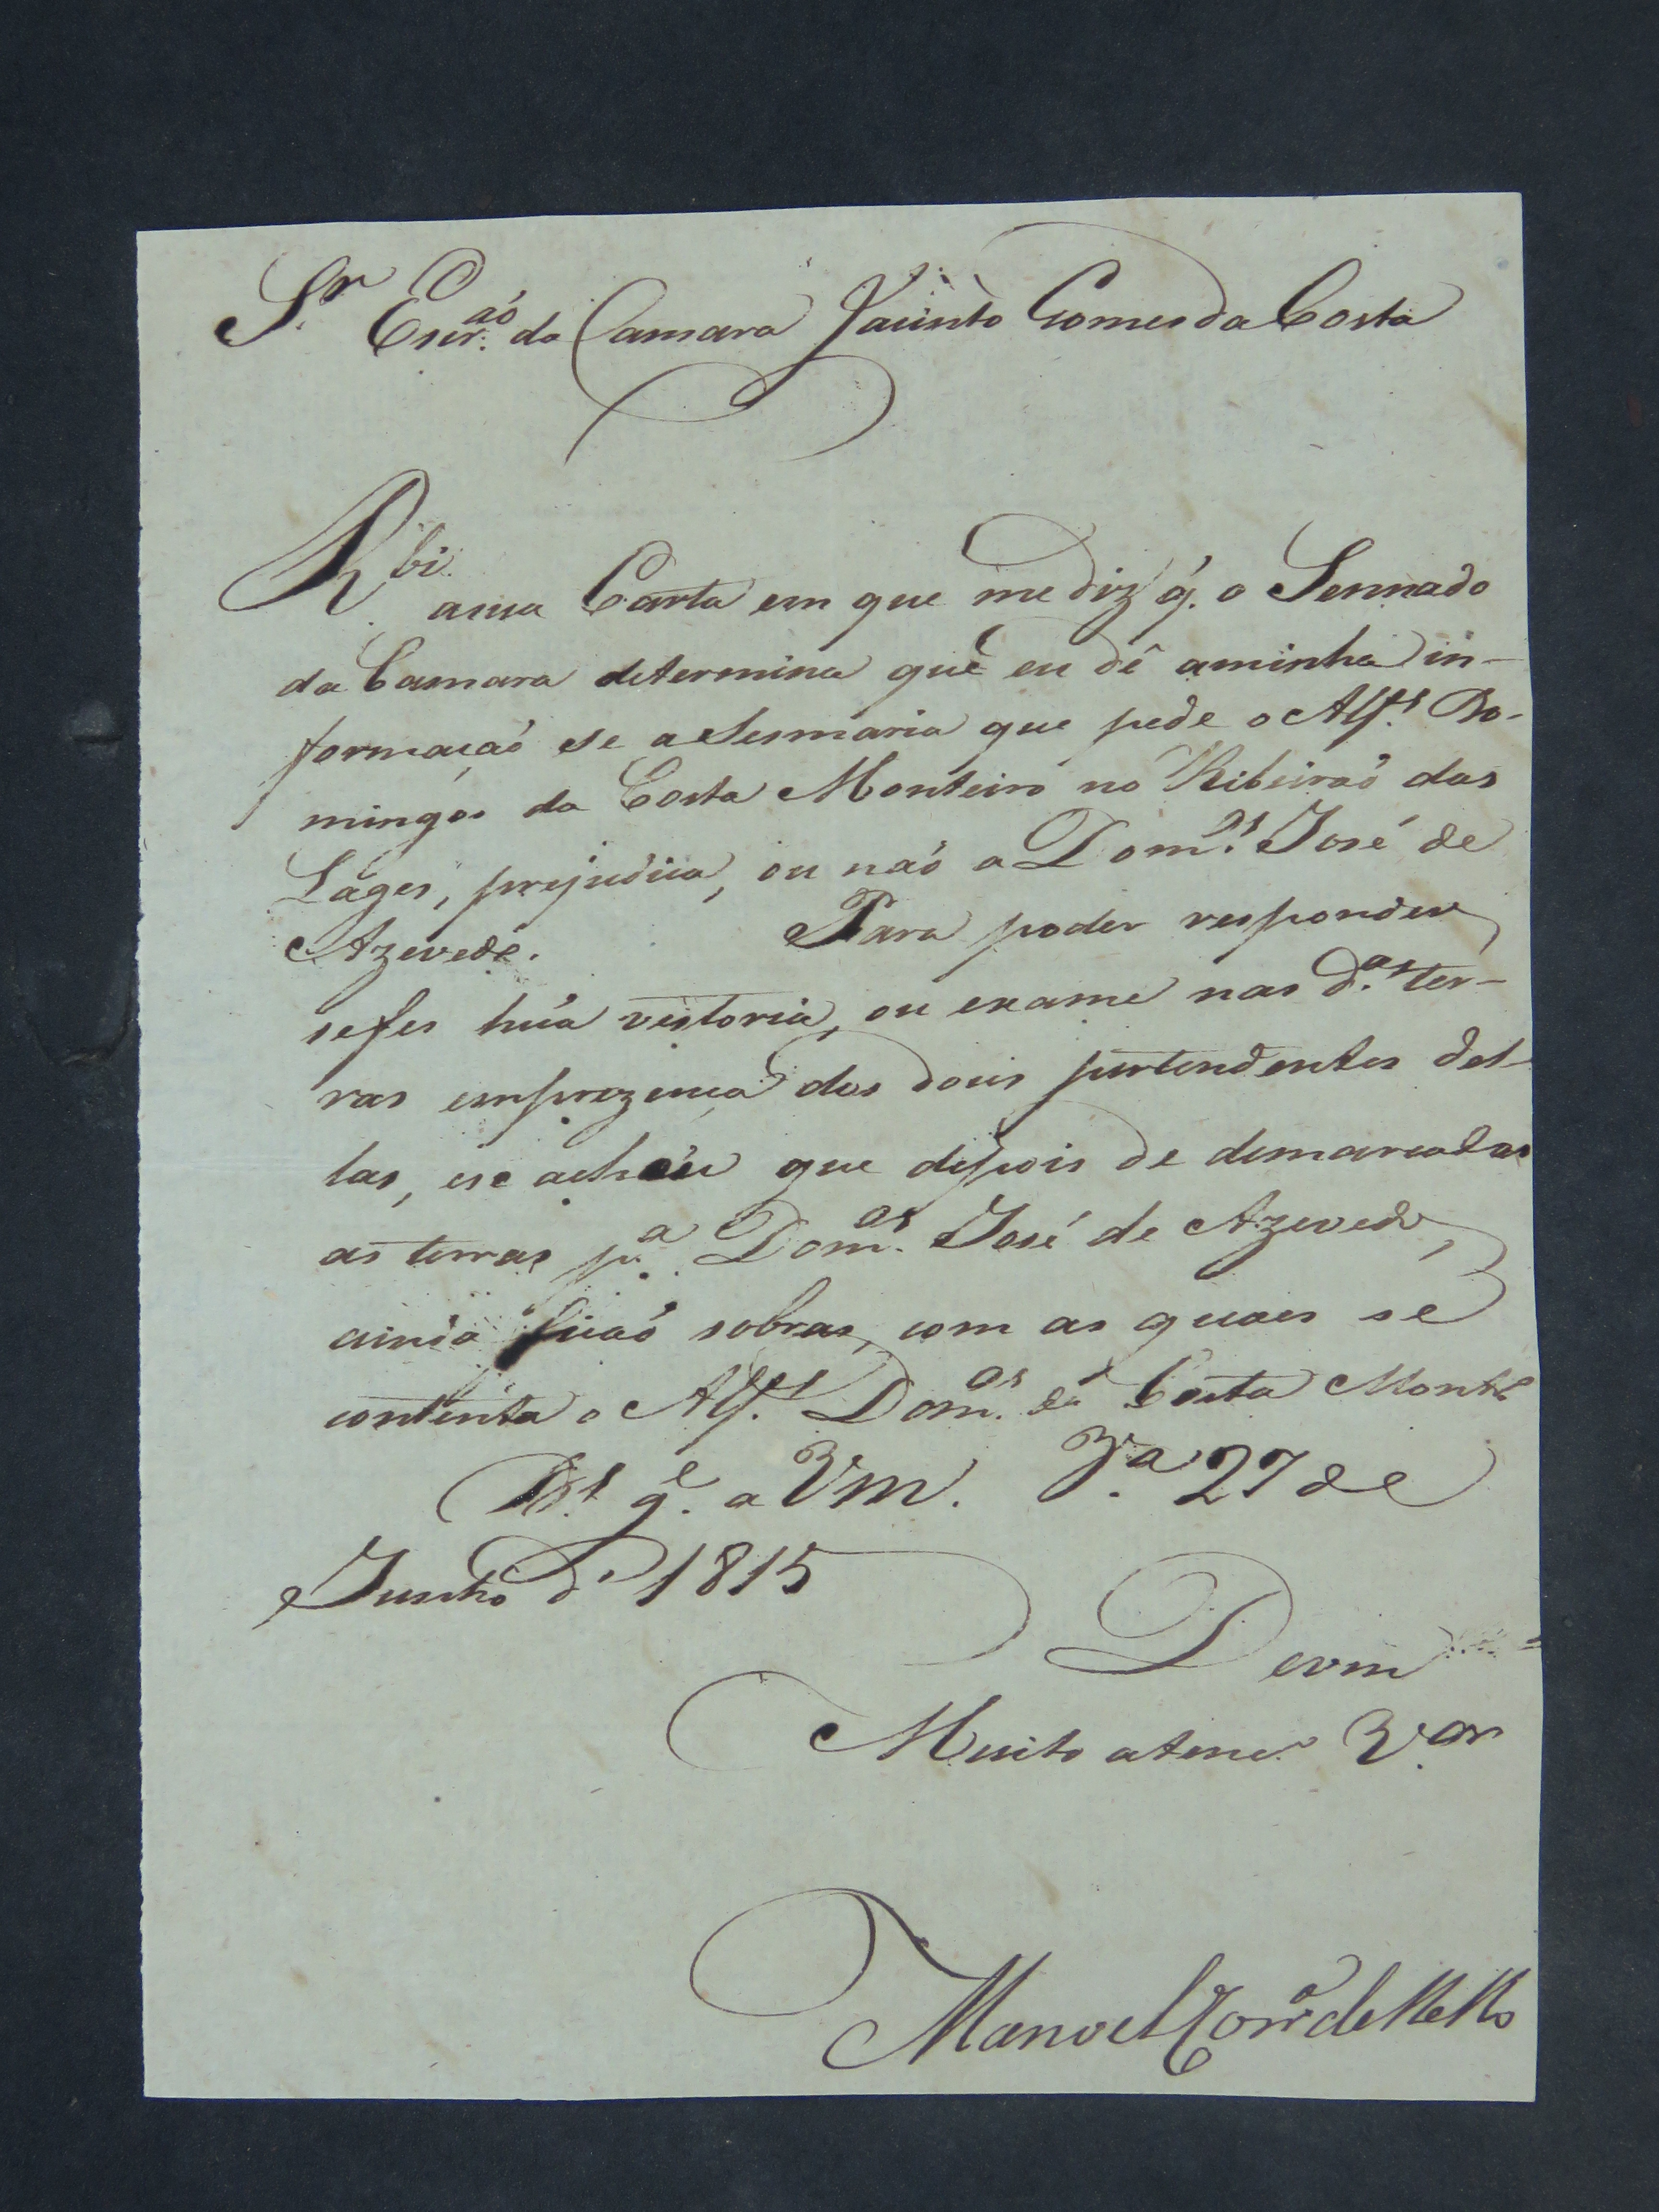 Sr. Escr.aó da Camara Jacinto Gomes da Costa
Rbi. a sua Carta em que me diz q. o Sennado
da Camara determina que eu dê aminha in-
formaçaó se a Sesmaria que pede o Alfs. Do-
mingos da Costa Monteiro no Ribeiraó das
Láges, prejudica, ou naó a Dom.os José de
Azevedo. Para poder responder
se fes húa vestoria, ou exame nas d.as ter-
ras em prezença dos dous pertendentes del-
las, e se achou que depois de demarcadas
as terras p.a Dom.os José de Azevedo,
ainda ficaó sobras, com as quaes se
contenta o Alfs. Dom.os da Costa Montr.o
Ds. g.e a Vm. V.a 27 de
Junho d' 1815
De vm
Muito aten. V.or
Manoel Corr.a de Mello